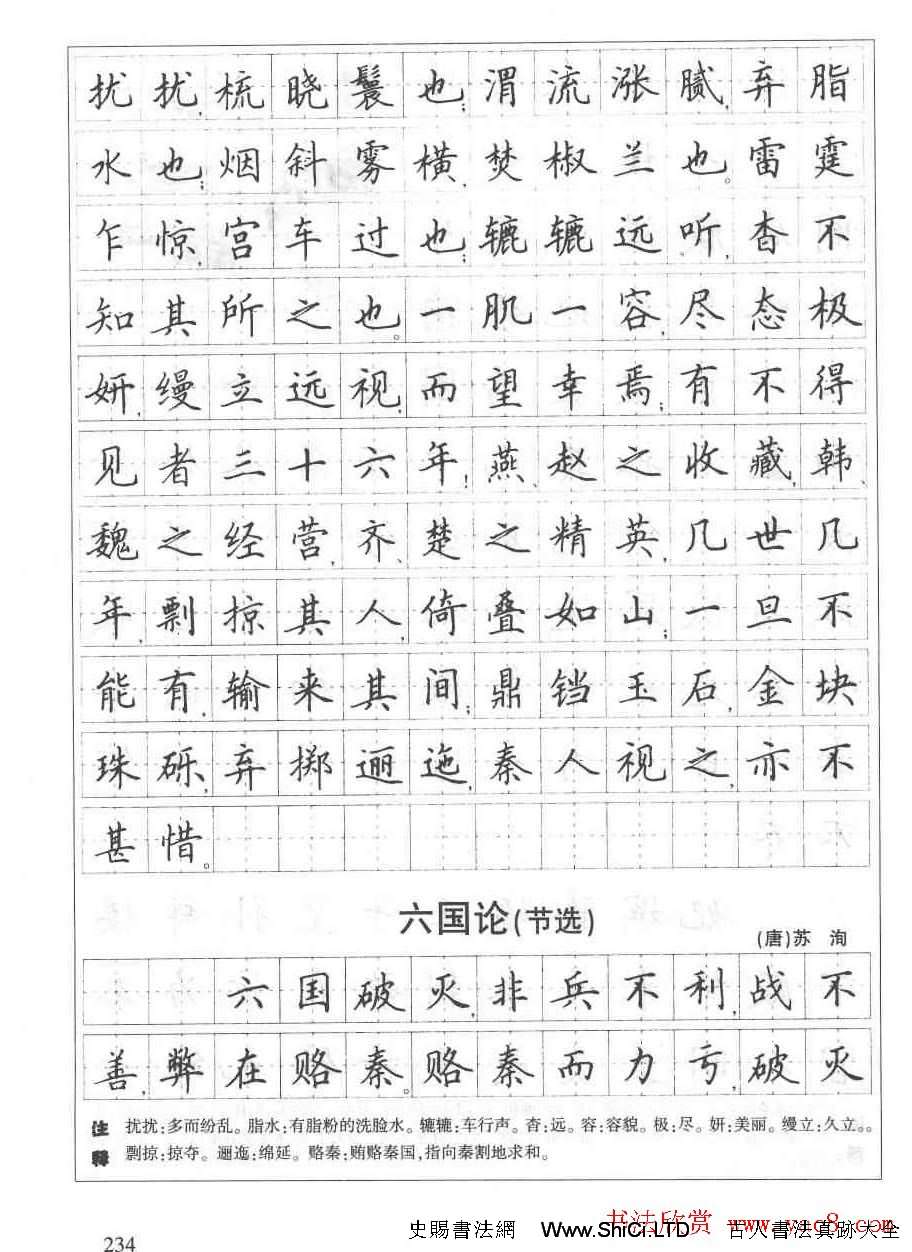 扰扰,梳晓鬟也;渭流涨腻,弃脂
水也;烟斜雾横,焚椒兰也。雷霆
乍惊,宫车过也;辘辘远听,杳不
知其所之也。一肌一容,尽态极
妍,缦立远视,而望幸焉;有不得
见者三十六年!燕、赵之收藏,韩、
魏之经营,齐、楚之精英,几世几
年,剽掠其人,倚叠如山;一旦不
能有,输来其间;鼎铛玉石,金块
珠砾,弃掷逦迤,秦人视之,亦不
甚惜。
六国论(节选)
(唐)苏 洵
六国破灭,非兵不利,战不
善,弊在赂秦。赂秦而力亏,破灭
注释
扰扰:多而纷乱。脂水:有脂粉的洗脸水。辘辘:车行声。杳:远。容:容貌。极:尽。妍:美丽。缦立:久立。。
剽掠:掠夺。逦迤:绵延。赂秦:贿赂秦国,指向秦割地求和。
书法欣赏 www.yac8.com
史賜書法網 Www.ShiCi.LTD 古人書法真跡大全
234